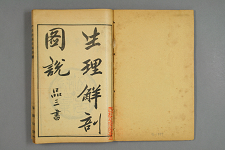 生理解剖
圖說
品三書